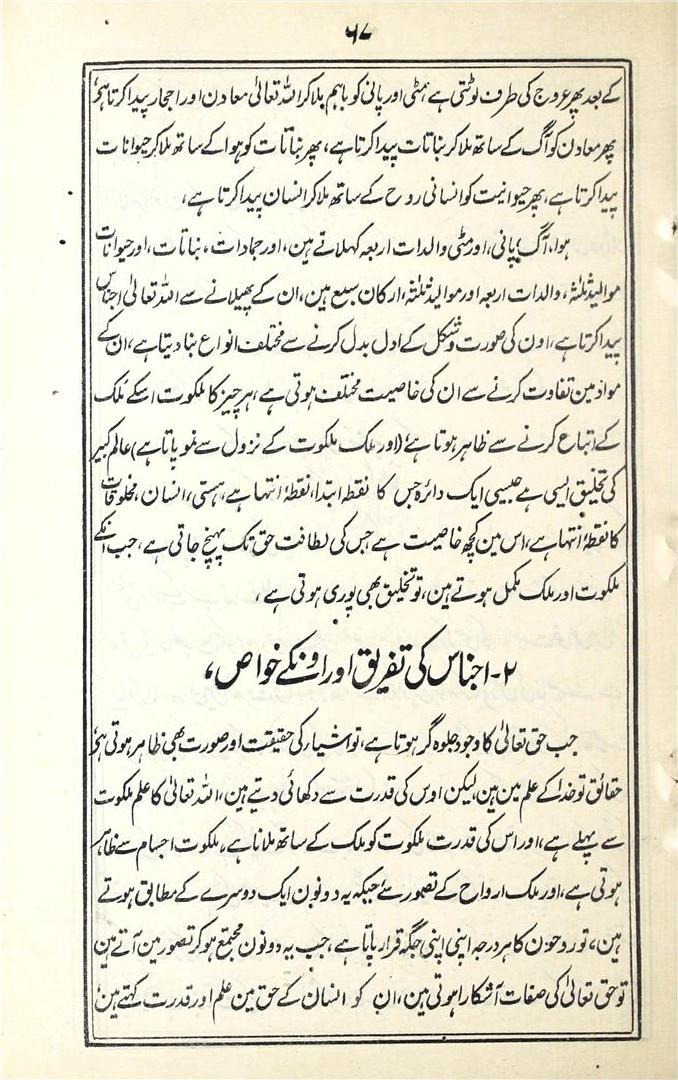 ۶۷
کے بعد پھر عروج کی طرف لوٹتی ہے، مٹی اور پانی کو باہم ملا کر اللہ تعالیٰ معادن اور احجار پیدا کرتا ہے،
پھر معادن کو آگ کے ساتھ ملا کر نباتات پیدا کرتا ہے، پھر نباتات کو ہوا کے ساتھ ملا کر حیوانات
پیدا کرتا ہے، پھر حیوانیت کو انسانی روح کے ساتھ ملا کر انسان پیدا کرتا ہے،
ہوا، آگ، پانی، اور مٹی والدات اربعہ کہلاتے ہین، اور جمادات، نباتات، اور حیوانات
موالید ثلثہ، والدات اربعہ اور موالید ثلثہ، ارکان سبع ہین، ان کے پھیلانے سے اللہ تعالیٰ اجناس
پیدا کرتا ہے، اون کی صورت و شکل کے اول بدل کرنے سے مختلف انواع بنا دیتا ہے، ان کے
مواد مین تفاوت کرنے سے ان کی خاصیت مختلف ہوتی ہے، ہر چیز کا ملکوت اسکے ملک
کے اتباع کرنے سے ظاہر ہوتا ہے، (اور ملک ملکوت کے نزول سے نمو پاتا ہے) عالم کبیر
کی تخلیق ایسی ہے جیسی ایک دائرہ جس کا نقطہ ابتدا، نقطۂ انتہا ہے، ہستی، انسان، مخلوقات
کا نقطۂ انتہا ہے، اس مین کچھ خاصیت ہے جس کی لطافت حق تک پہنچ جاتی ہے، جب انکے
ملکوت اور ملک مکمل ہوتے ہین، تو تخلیق بھی پوری ہوتی ہے،
۲- اجناس کی تفریق اور اونکے خواص،
جب حق تعالیٰ کا وجود جلوہ گر ہوتا ہے، تو اشیاء کی حقیقت اور صورت بھی ظاہر ہوتی ہے،
حقائق تو خدا کے علم مین ہین، لیکن اوس کی قدرت سے دکھائی دیتے ہین، اللہ تعالیٰ کا علم ملکوت
سے پہلے ہے، اور اس کی قدرت ملکوت کو ملک کے ساتھ ملانا ہے، ملکوت اجسام سے ظاہر
ہوتی ہے، اور ملک ارواح کے تصور سے، جبکہ یہ دونون ایک دوسرے کے مطابق ہوتے
ہین، تو روحون کا ہر درجہ اپنی اپنی جگہ قرار پاتا ہے، جب یہ دونون مجتمع ہو کر تصور مین آتے ہین
تو حق تعالیٰ کی صفات آشکارا ہوتی ہین، ان کو انسان کے حق مین علم اور قدرت کہتے ہین،